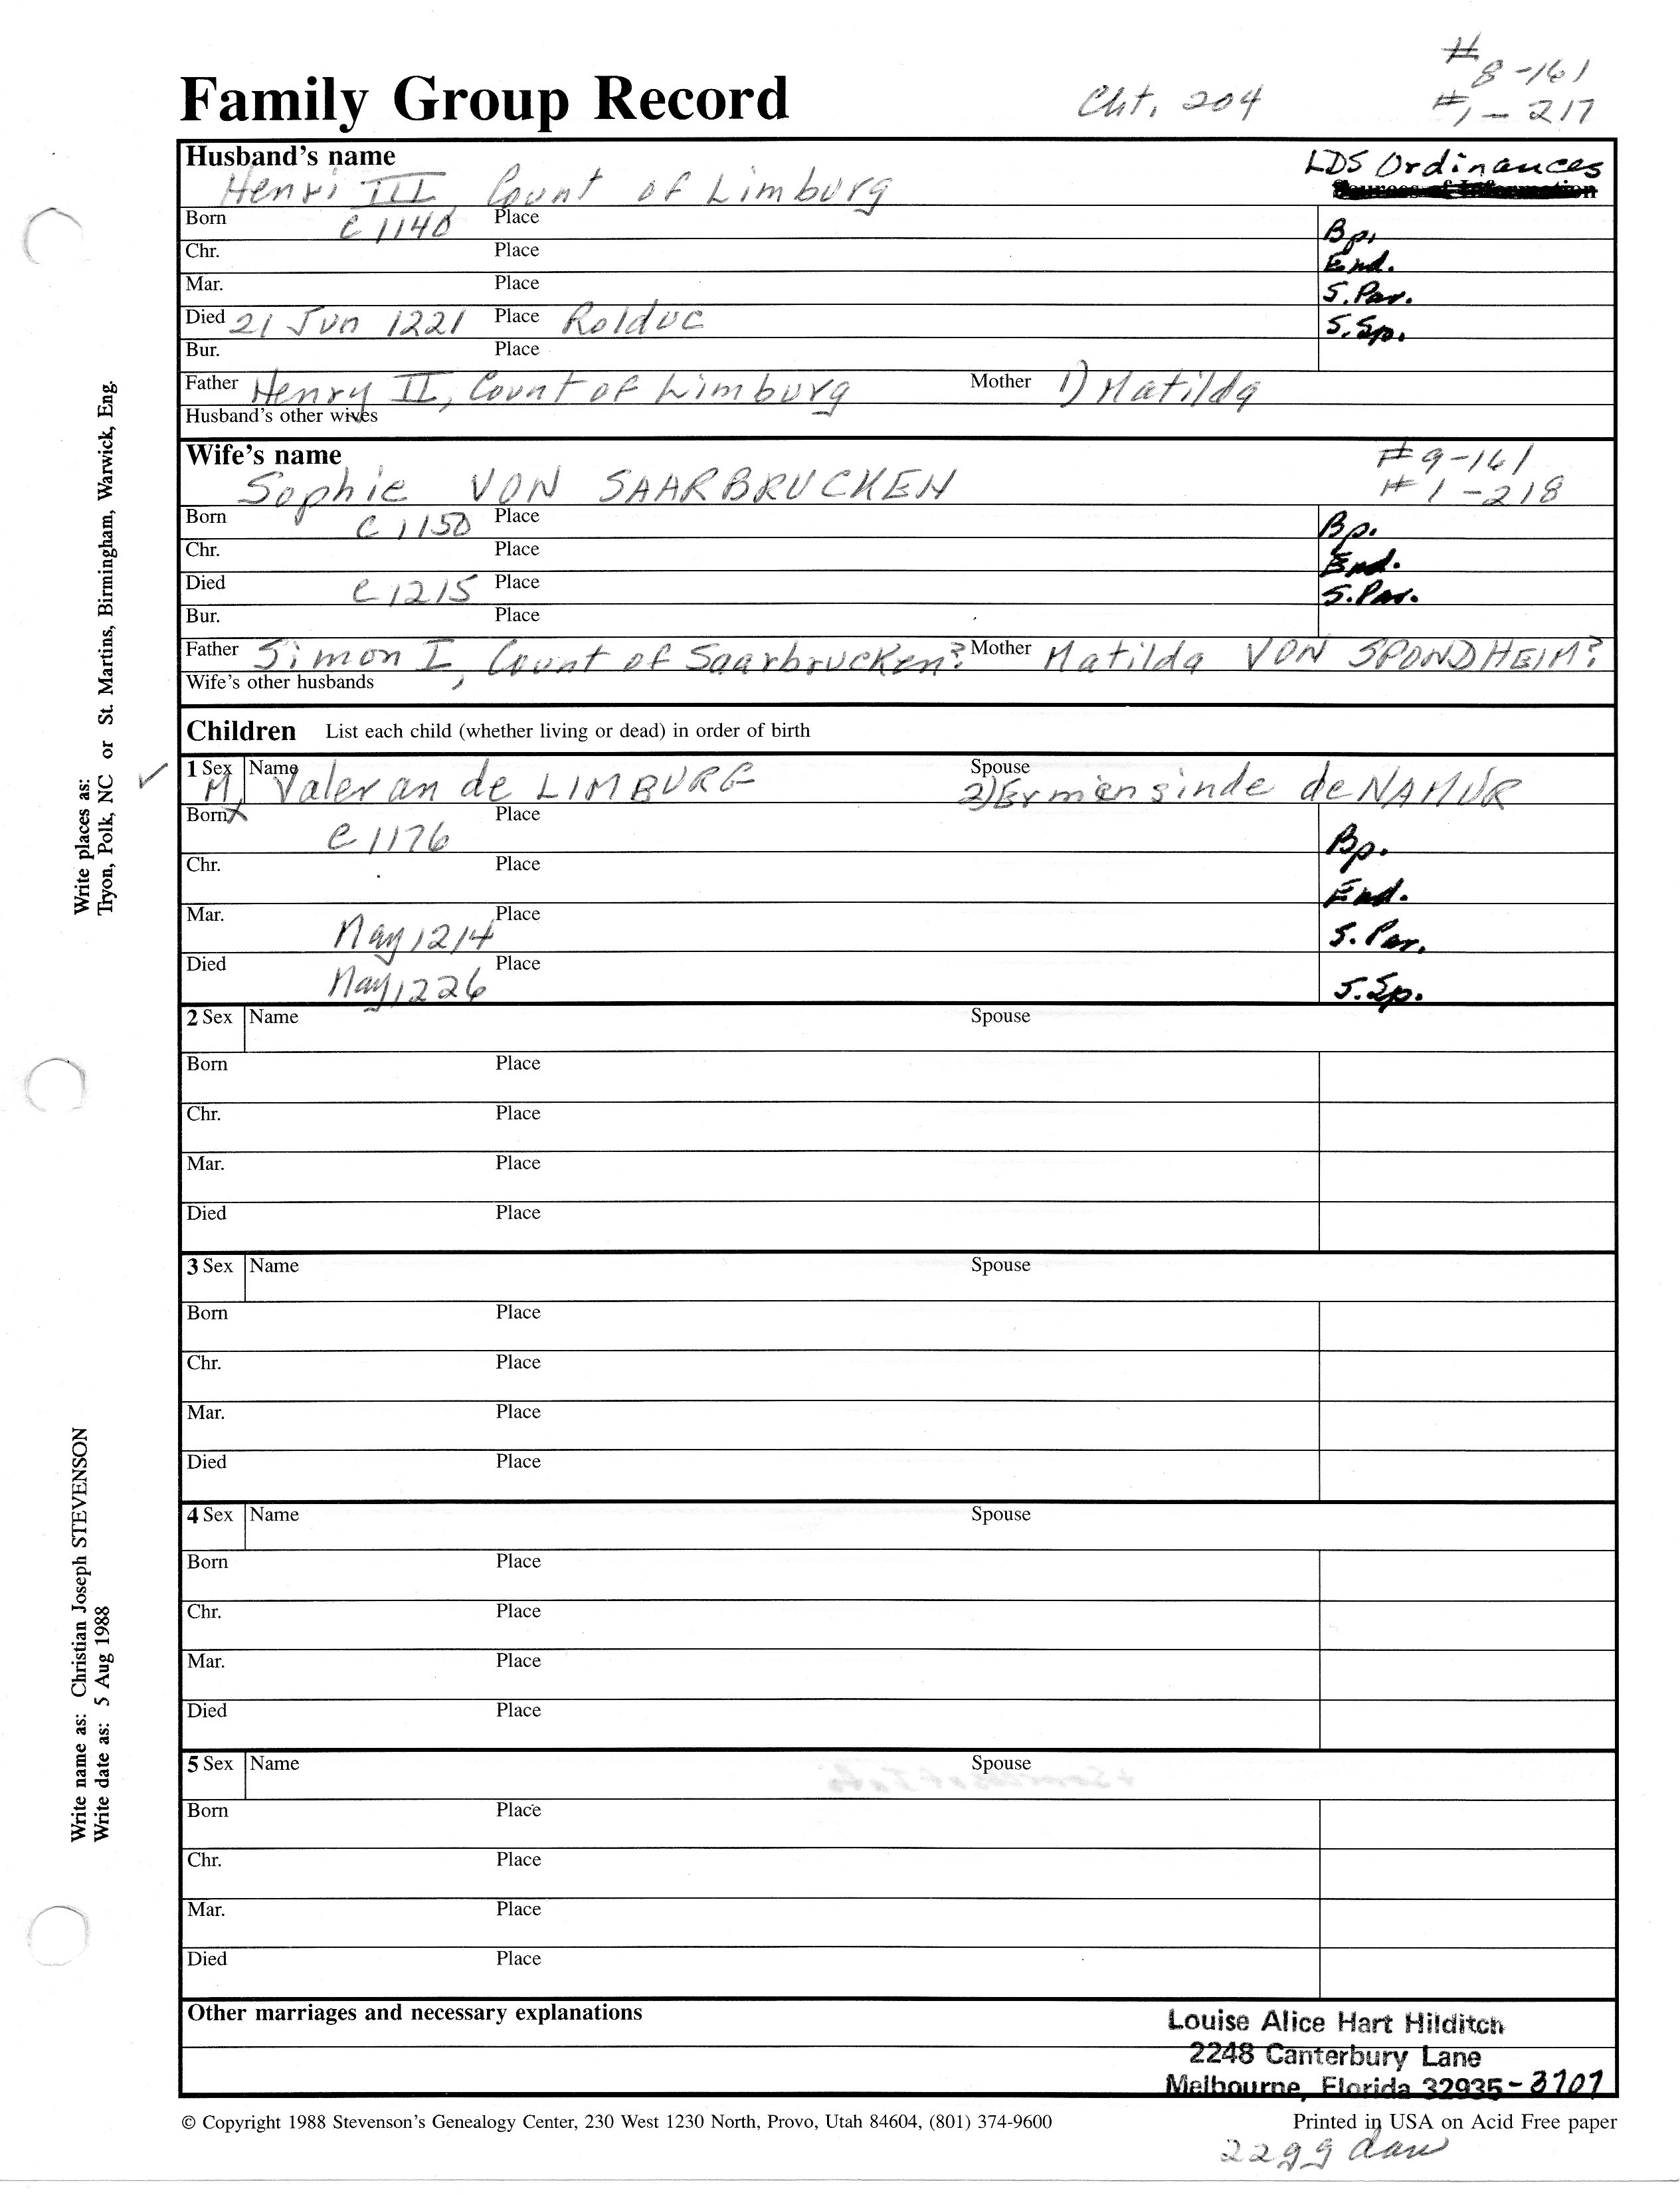 #8-161
Family Group Record Cht. 204 #1-217
Husband's name LDS Ordinances
Henri III, Count of Limburg
Born c 1140 Place Bp.
Chr. Place End.
Mar. Place S. Par.
Died 21 Jun 1221 Place Rolduc S. Sp.
Bur. Place
Father Henry II, Count of Limburg Mother 1) Matilda
Husband's other wives
Wife's name #9-161
Sophie VON SAARBRUCKEN #1-218
Born c 1150 Place Bp.
Chr. Place End.
Died c 1215 Place S. Par.
Bur. Place
Father Simon I, Count of Saarbrucken? Mother Matilda VON SPONDHEIM?
Wife's other husbands
Children List each child (whether living or dead) in order of birth
1 Sex M Name Valeran de LIMBURG Spouse 2) Ermensinde de NAMUR
Born c 1176 Place Bp.
Chr. Place End.
Mar. May 1214 Place S. Par.
Died May 1226 Place S. Sp.
2 Sex Name Spouse
Born Place
Chr. Place
Mar. Place
Died Place
3 Sex Name Spouse
Born Place
Chr. Place
Mar. Place
Died Place
4 Sex Name Spouse
Born Place
Chr. Place
Mar. Place
Died Place
5 Sex Name Spouse
Born Place
Chr. Place
Mar. Place
Died Place
Other marriages and necessary explanations
Louise Alice Hart Hilditch
2248 Canterbury Lane
Melbourne, Florida 32935-3707
© Copyright 1988 Stevenson's Genealogy Center, 230 West 1230 North, Provo, Utah 84604, (801) 374-9600 Printed in USA on Acid Free paper
22 gg dau
Write places as:
Tryon, Polk, NC or St. Martins, Birmingham, Warwick, Eng.
Write name as: Christian Joseph STEVENSON
Write date as: 5 Aug 1988